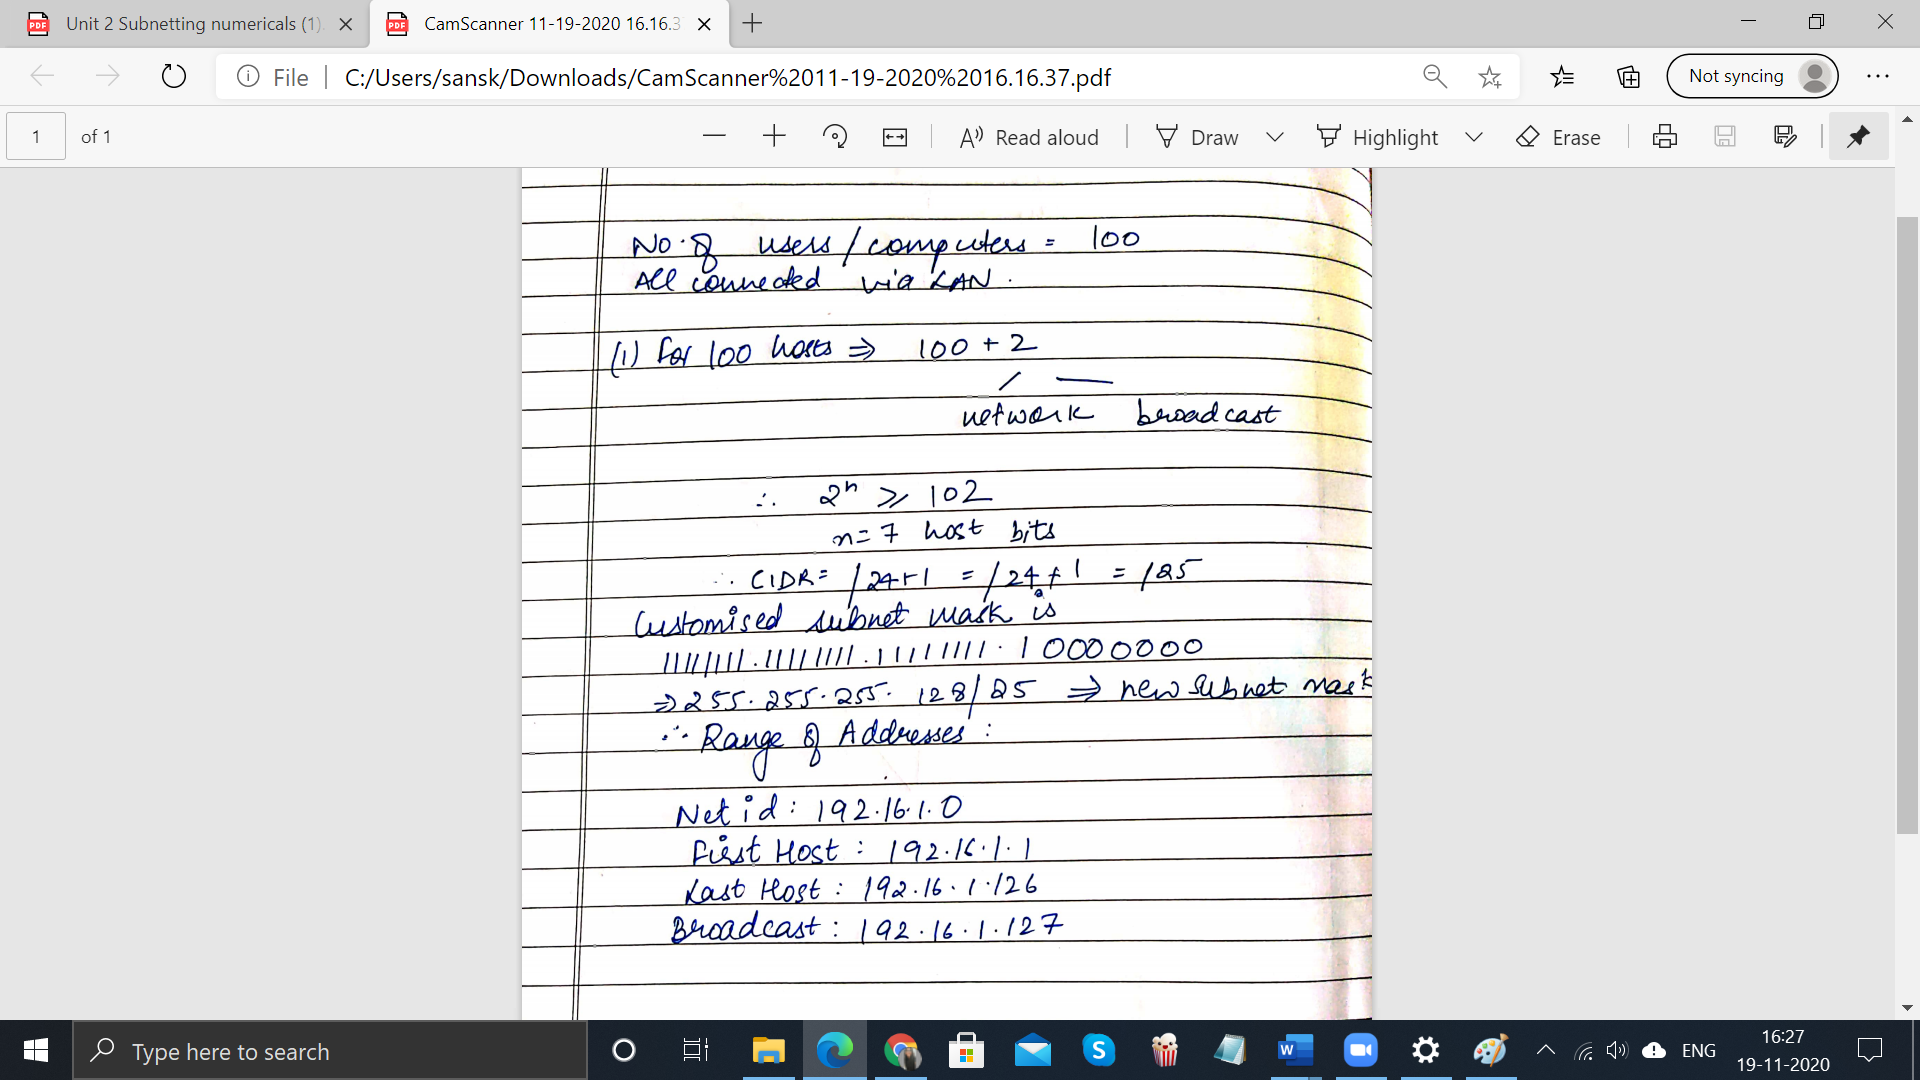 Unit 2 Subnetting numericals (1).
CamScanner 11-19-2020 16.16.3
File | C:/Users/sansk/Downloads/CamScanner%2011-19-2020%2016.16.37.pdf
Not syncing
1 of 1
Read aloud
Draw
Highlight
Erase
No. of users / computers = 100
All connected via LAN.
(1) for 100 hosts ⇒ 100 + 2
network broadcast
∴ 2ⁿ ⩾ 102
n = 7 host bits
∴ CIDR = /24+1 = /24+1 = /25
Customised subnet mask is
11111111.11111111.11111111.10000000
⇒ 255.255.255.128/25 ⇒ new subnet mask
∴ Range of Addresses :
Net id : 192.16.1.0
First Host : 192.16.1.1
Last Host : 192.16.1.126
Broadcast : 192.16.1.127
Type here to search
ENG
16:27
19-11-2020